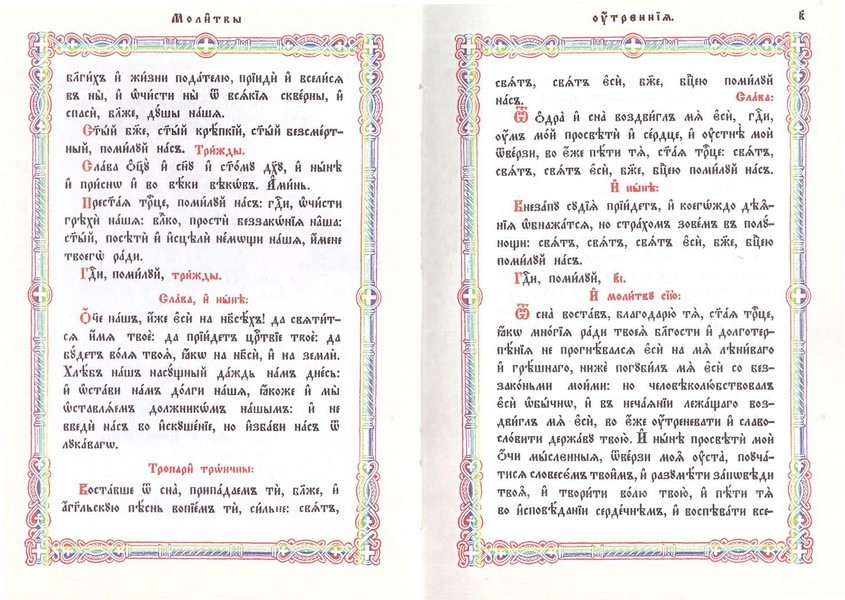 Моли́твы
бл҃ги́хъ и҆ жи́зни пода́телю, прїидѝ и҆ всели́сѧ
въ ны̀, и҆ ѡ҆чи́сти ны̀ ѿ всѧ́кїѧ скве́рны, и҆
спасѝ, бл҃же, дꙋ́шы на́шѧ.
Ст҃ы́й бж҃е, ст҃ы́й крѣ́пкїй, ст҃ы́й безсме́рт-
ный, поми́лꙋй на́съ. Три́жды.
Сла́ва ѻ҆ц҃ꙋ̀ и҆ сн҃ꙋ и҆ ст҃о́мꙋ дх҃ꙋ, и҆ ны́нѣ
и҆ при́снѡ и҆ во вѣ́ки вѣкѡ́въ. А҆ми́нь.
Прест҃а́ѧ трⷪ҇це, поми́лꙋй на́съ: гдⷭ҇и, ѡ҆чи́сти
грѣхѝ на́шѧ: влⷣко, простѝ беззакѡ́нїѧ на̑ша:
ст҃ы́й, посѣтѝ и҆ и҆сцѣлѝ не́мѡщи на́шѧ, и҆́мене
твоегѡ̀ ра́ди.
Гдⷭ҇и, поми́лꙋй, три́жды.
Сла́ва, и҆ ны́нѣ:
Ѻ҆́ч҃е на́шъ, и҆́же є҆сѝ на нб҃сѣ́хъ! да ст҃и́т-
сѧ и҆́мѧ твоѐ: да прїи́детъ црⷭ҇твїе твоѐ: да
бꙋ́детъ во́лѧ твоѧ̀, ꙗ҆́кѡ на нб҃сѝ, и҆ на землѝ.
Хлѣ́бъ на́шъ насꙋ́щный да́ждь на́мъ дне́сь:
и҆ ѡ҆ста́ви на́мъ до́лги на́шѧ, ꙗ҆́коже и҆ мы̀
ѡ҆ставлѧ́емъ должникѡ́мъ на́шымъ: и҆ не
введѝ на́съ во и҆скꙋше́нїе, но и҆зба́ви на́съ ѿ
лꙋка́вагѡ.
Тропари̑ трⷪ҇чны:
Воста́вше ѿ сна̀, припа́даемъ тѝ, бл҃же, и҆
а҆́гг҃льскꙋю пѣ́снь вопїе́мъ тѝ, си́льне: свѧ́тъ,
ᲂу҆́тренїѧ.
в҃
свѧ́тъ, свѧ́тъ є҆сѝ, бж҃е, бцⷣею поми́лꙋй
на́съ. Сла́ва:
Ѿ ѻ҆дра̀ и҆ сна̀ воздви́глъ мѧ̀ є҆сѝ, гдⷭ҇и,
ᲂу҆́мъ мо́й просвѣтѝ и҆ се́рдце, и҆ ᲂу҆стнѣ̀ моѝ
ѿве́рзи, во є҆́же пѣ́ти тѧ̀, ст҃а́ѧ трⷪ҇це: свѧ́тъ,
свѧ́тъ, свѧ́тъ є҆сѝ, бж҃е, бцⷣею поми́лꙋй на́съ.
И҆ ны́нѣ:
Внеза́пꙋ сꙋдїѧ̀ прїи́детъ, и҆ коегѡ́ждо дѣѧ̑-
нїѧ ѡ҆бнажа́тсѧ, но стра́хомъ зове́мъ въ полꙋ́-
нощи: свѧ́тъ, свѧ́тъ, свѧ́тъ є҆сѝ, бж҃е, бцⷣею
поми́лꙋй на́съ.
Гдⷭ҇и, поми́лꙋй, в҃і.
И҆ моли́твꙋ сїю̀:
Ѿ сна̀ воста́въ, благодарю̀ тѧ̀, ст҃а́ѧ трⷪ҇це,
ꙗ҆́кѡ мно́гїѧ ра́ди твоеѧ̀ бл҃гости и҆ долготер-
пѣ́нїѧ не прогнѣ́валсѧ є҆сѝ на мѧ̀ лѣни́ваго
и҆ грѣ́шнаго, нижѐ погꙋби́лъ мѧ̀ є҆сѝ со без-
зако́ньми мои́ми: но человѣколю́бствовалъ
є҆сѝ ѡ҆бы́чнѡ, и҆ въ неча́ѧнїи лежа́щаго воз-
дви́глъ мѧ̀ є҆сѝ, во є҆́же ᲂу҆́треневати и҆ славо-
сло́вити держа́вꙋ твою̀. И҆ ны́нѣ просвѣтѝ моѝ
ѻ҆́чи мы́сленныѧ, ѿве́рзи моѧ̑ ᲂу҆ста̀, поꙋча́-
тисѧ словесє́мъ твои̑мъ, и҆ разꙋмѣ́ти за́пѡвѣди
твоѧ̑, и҆ твори́ти во́лю твою̀, и҆ пѣ́ти тѧ̀
во и҆сповѣ́данїи серде́чнѣмъ, и҆ воспѣва́ти все-